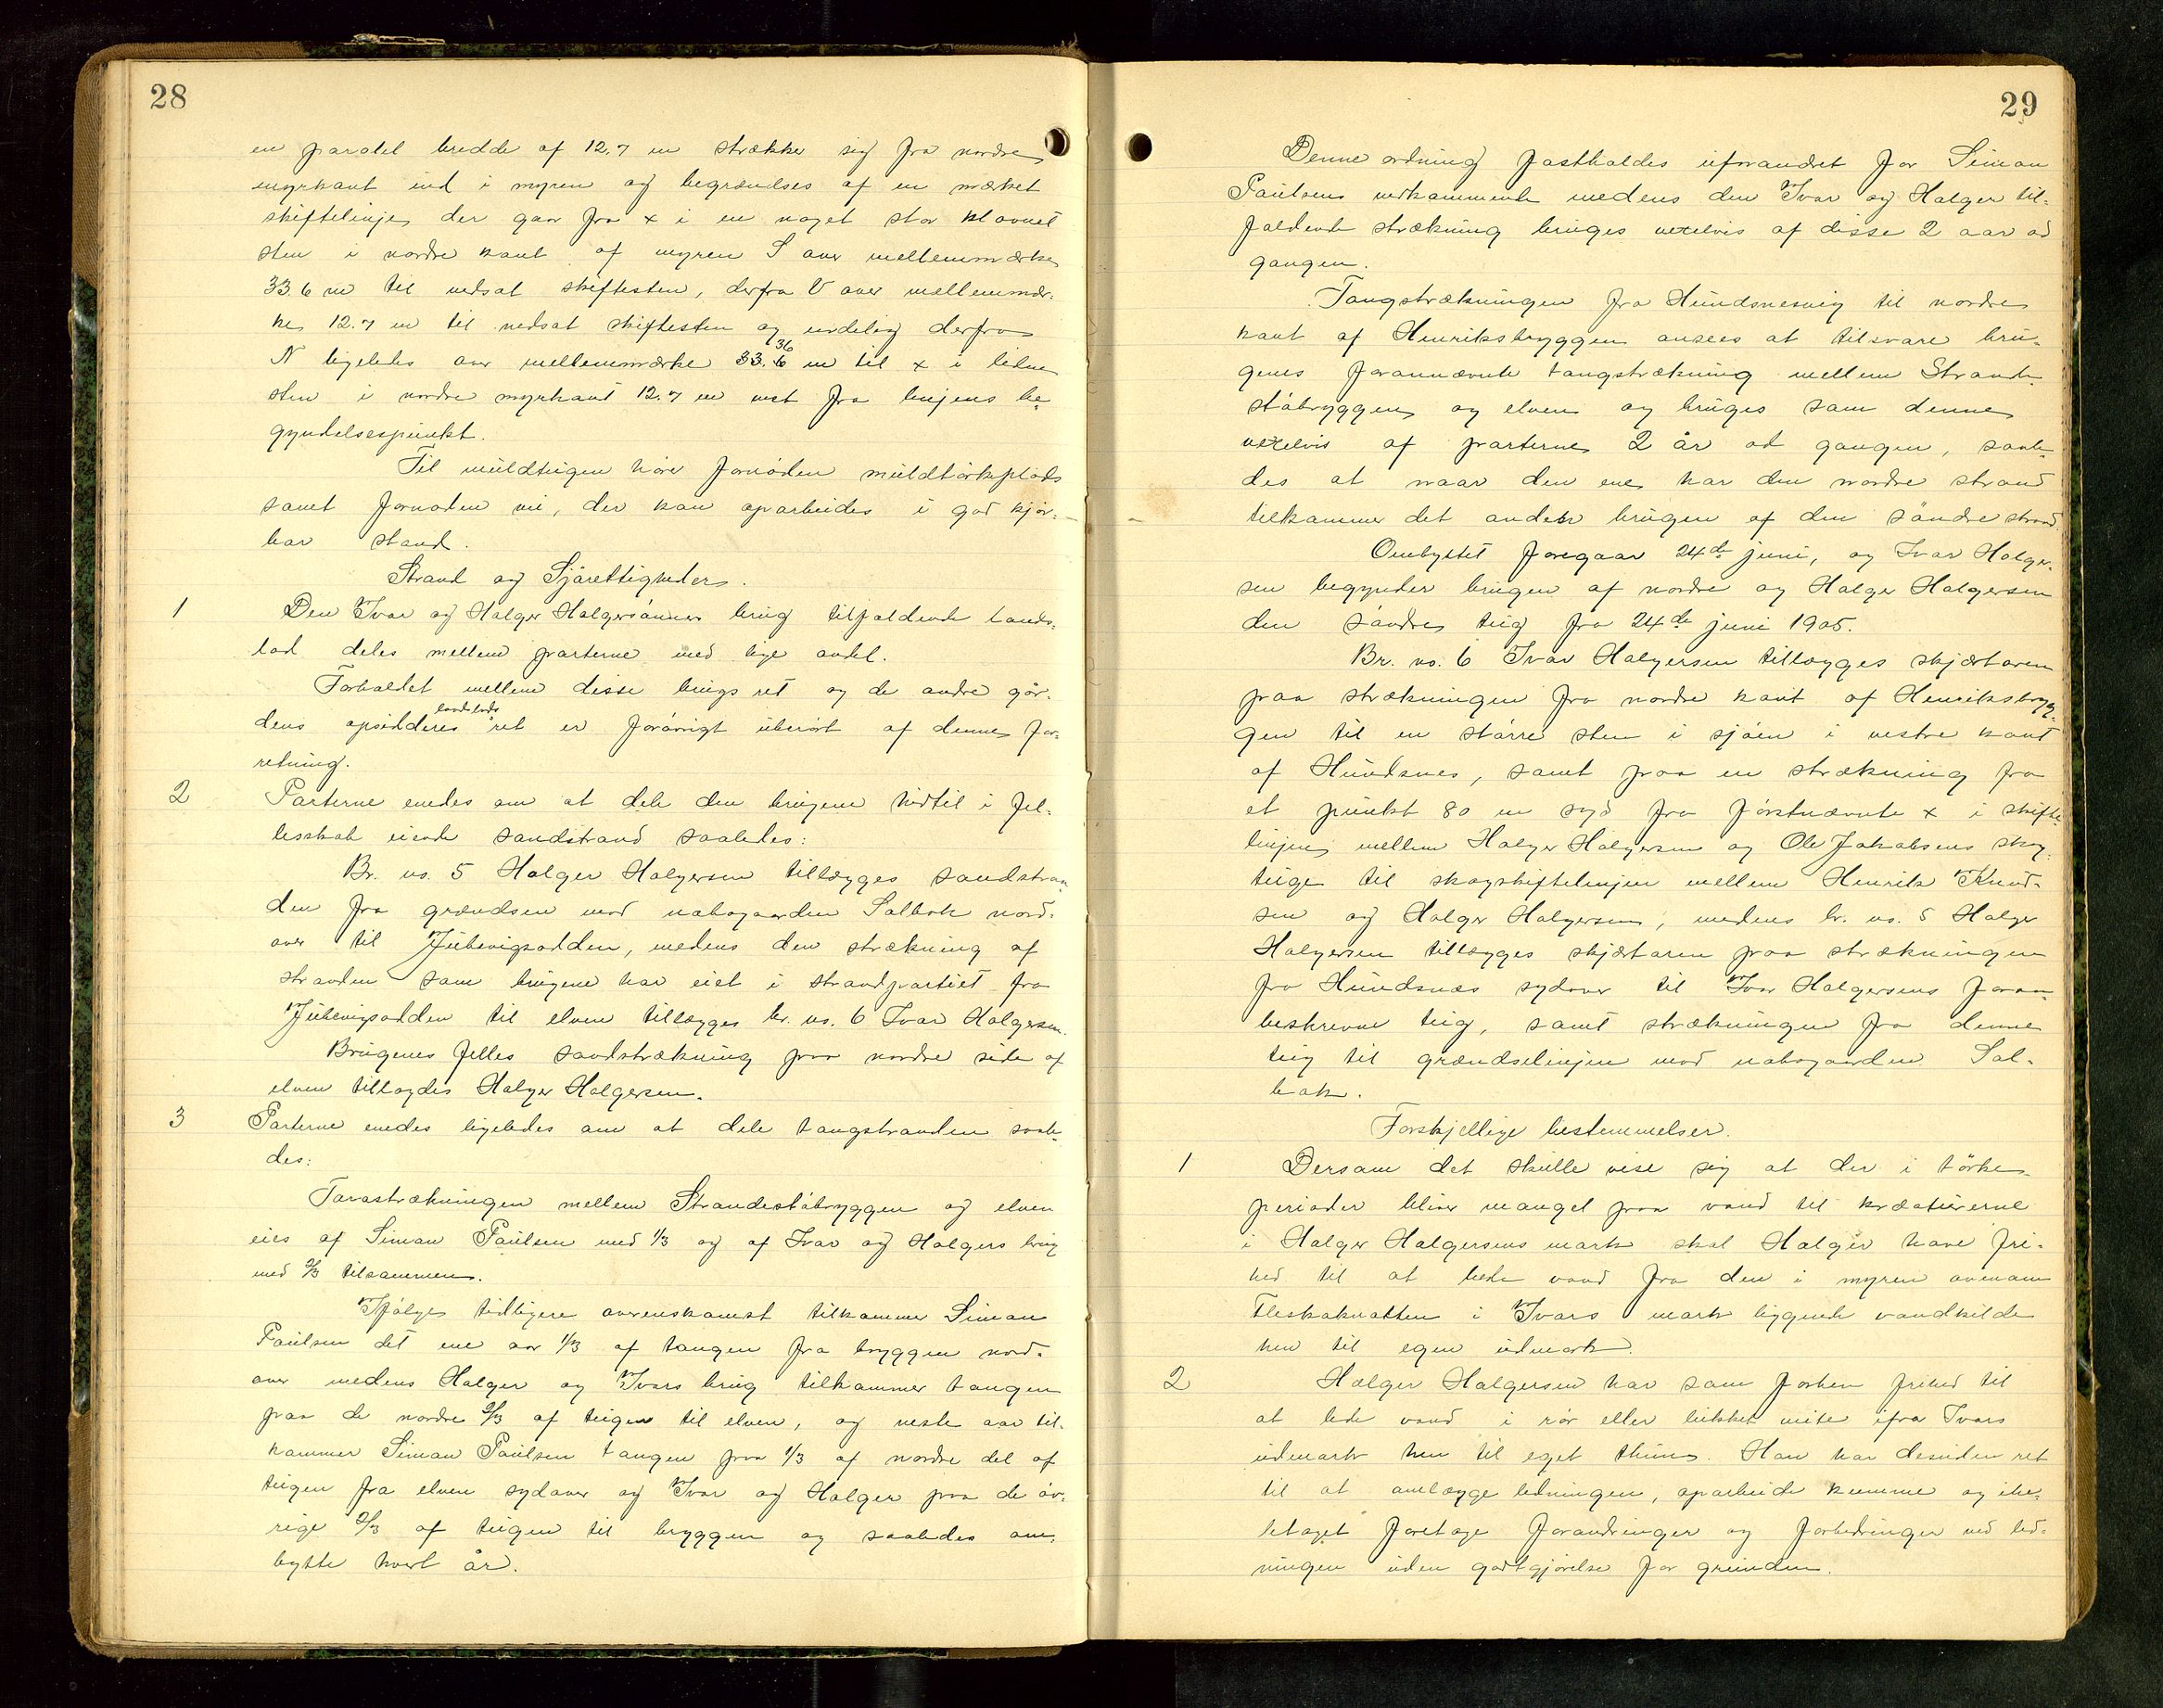 28
en paralel bredde af 12.7 m strækker sig fra nordre
myrkant ind i myren og begrændses af en mærket
skiftelinje, der gaar fra x i en noget stor kløvnet
sten i nordre kant af myren S over mellemmærke
33.6 m til nedsat skiftesten, derfra V over mellemmær-
ke 12.7 m til nedsat skiftesten og endelig derfra
N ligeledes over mellemmærke 33.6 36 m til x i liden
sten i nordre myrkant 12.7 m vest fra linjens be-
gyndelsespunkt.
Til muldteigen hører fornøden muldtørkeplads
samt fornøden vei, der kan oparbeides i god kjør-
bar stand.
Strand og Sjørettigheder.
1 Den Ivar og Holger Holgersønners brug tilfaldende lands-
lod deles mellem parterne med lige andel.
Forholdet mellem disse brugs ret og de andre går-
dens opsidderes landlods ret er forøvrigt uberørt af denne for-
retning.
2 Parterne enedes om at dele den brugene hidtil i fel-
lesskab eiende sandstrand saaledes:
Br. no. 5 Holger Holgersen tillægges sandstran-
den fra grændsen mod nabogaarden Solbak nord-
over til Jubevigsodden, medens den strækning af
stranden som brugene har eiet i strandpartiet fra
Jubevigsodden til elven tillægges br. no. 6 Ivar Holgersen.
Brugenes felles sandstrækning paa nordre side af
elven tillagdes Holger Holgersen.
3 Parterne enedes ligeledes om at dele tangstranden saale-
des:
Tarastrækningen mellem Strandestøbryggen og elven
eies af Simon Paulsen med 1/3 og af Ivar og Holgers brug
med 2/3 tilsammen.
Ifølge tidligere overenskomst tilkommer Simon
Paulsen det ene aar 1/3 af tangen fra bryggen nord-
over medens Holger og Ivars brug tilkommer tangen
paa de nordre 2/3 af teigen til elven, og neste aar til-
kommer Simon Paulsen tangen paa 1/3 af nordre del af
teigen fra elven sydover og Ivar og Holger paa de øv-
rige 2/3 af teigen til bryggen og saaledes om-
bytte hvert år.
29
Denne ordning fastholdes uforandret for Simon
Paulsens vedkommende medens den Ivar og Holger til-
faldende strækning bruges vexelvis af disse 2 aar ad
gangen.
Tangstrækningen fra Hundsnesvig til nordre
kant af Henriksbryggen ansees at tilsvare bru-
genes forannævnte tangstrækning mellem Strande-
støbryggen og elven og bruges som denne
vexelvis af parterne 2 år ad gangen, saale-
des at naar den ene har den nordre strand
tilkommer det anden brugen af den søndre strand.
Ombyttet foregaar 24de juni, og Ivar Holger-
sen begynder brugen af nordre og Holger Holgersen
den søndre teig fra 24de juni 1905.
Br. no. 6 Ivar Holgersen tillægges skjærtaren
paa strækningen fra nordre kant af Henriksbryg-
gen til en større sten i sjøen i vestre kant
af Hundsnes, samt paa en strækning fra
et punkt 80 m syd fra førstnævnte x i skifte-
linjen mellem Holger Holgersen og Ole Jakobsens skog-
teige til skogskiftelinjen mellem Henrik Knud-
sen og Holger Holgersen, medens br. no. 5 Holger
Holgersen tillægges skjærtaren paa strækningen
fra Hundsnæs sydover til Ivar Holgersens foran-
beskrevne teig, samt strækningen fra denne
teig til grændselinjen mod nabogaarden Sol-
bak.
Forskjellige bestemmelser.
1 Dersom det skulle vise sig at der i tørke-
perioder bliver mangel paa vand til kreaturerne
i Holger Holgersens mark skal Holger have fri-
hed til at lede vand fra den i myren ovenom
Fleskaknatten i Ivars mark liggende vandkilde
hen til egen udmark.
2 Holger Holgersen har som forhen frihed til
at lede vand i rør eller lukket veite ifra Ivars
udmark hen til eget thun. Han har desuden ret
til at omlægge ledningen, oparbeide kumme og ihe-
letaget foretage forandringer og forbedringer ved led-
ningen uden godtgjørelse for grunden.